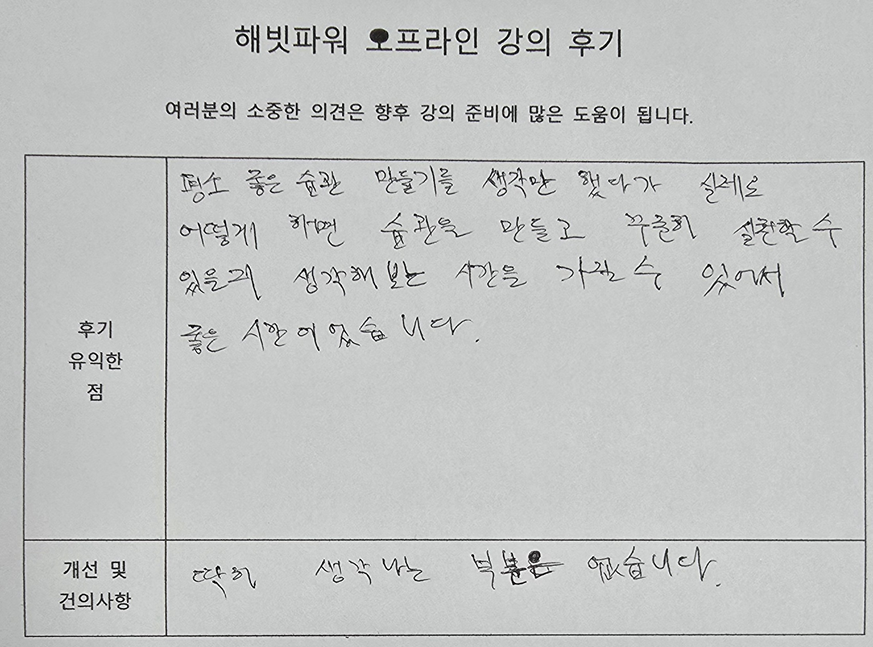 해빗파워 오프라인 강의 후기
여러분의 소중한 의견은 향후 강의 준비에 많은 도움이 됩니다.
평소 좋은 습관 만들기를 생각만 했다가 실제로
어떻게 하면 습관을 만들고 꾸준히 실천할 수
있을지 생각해 보는 시간을 가질 수 있어서
좋은 시간이었습니다.
후기
유익한
점
딱히 생각나는 없습니다.
개선 및
건의사항